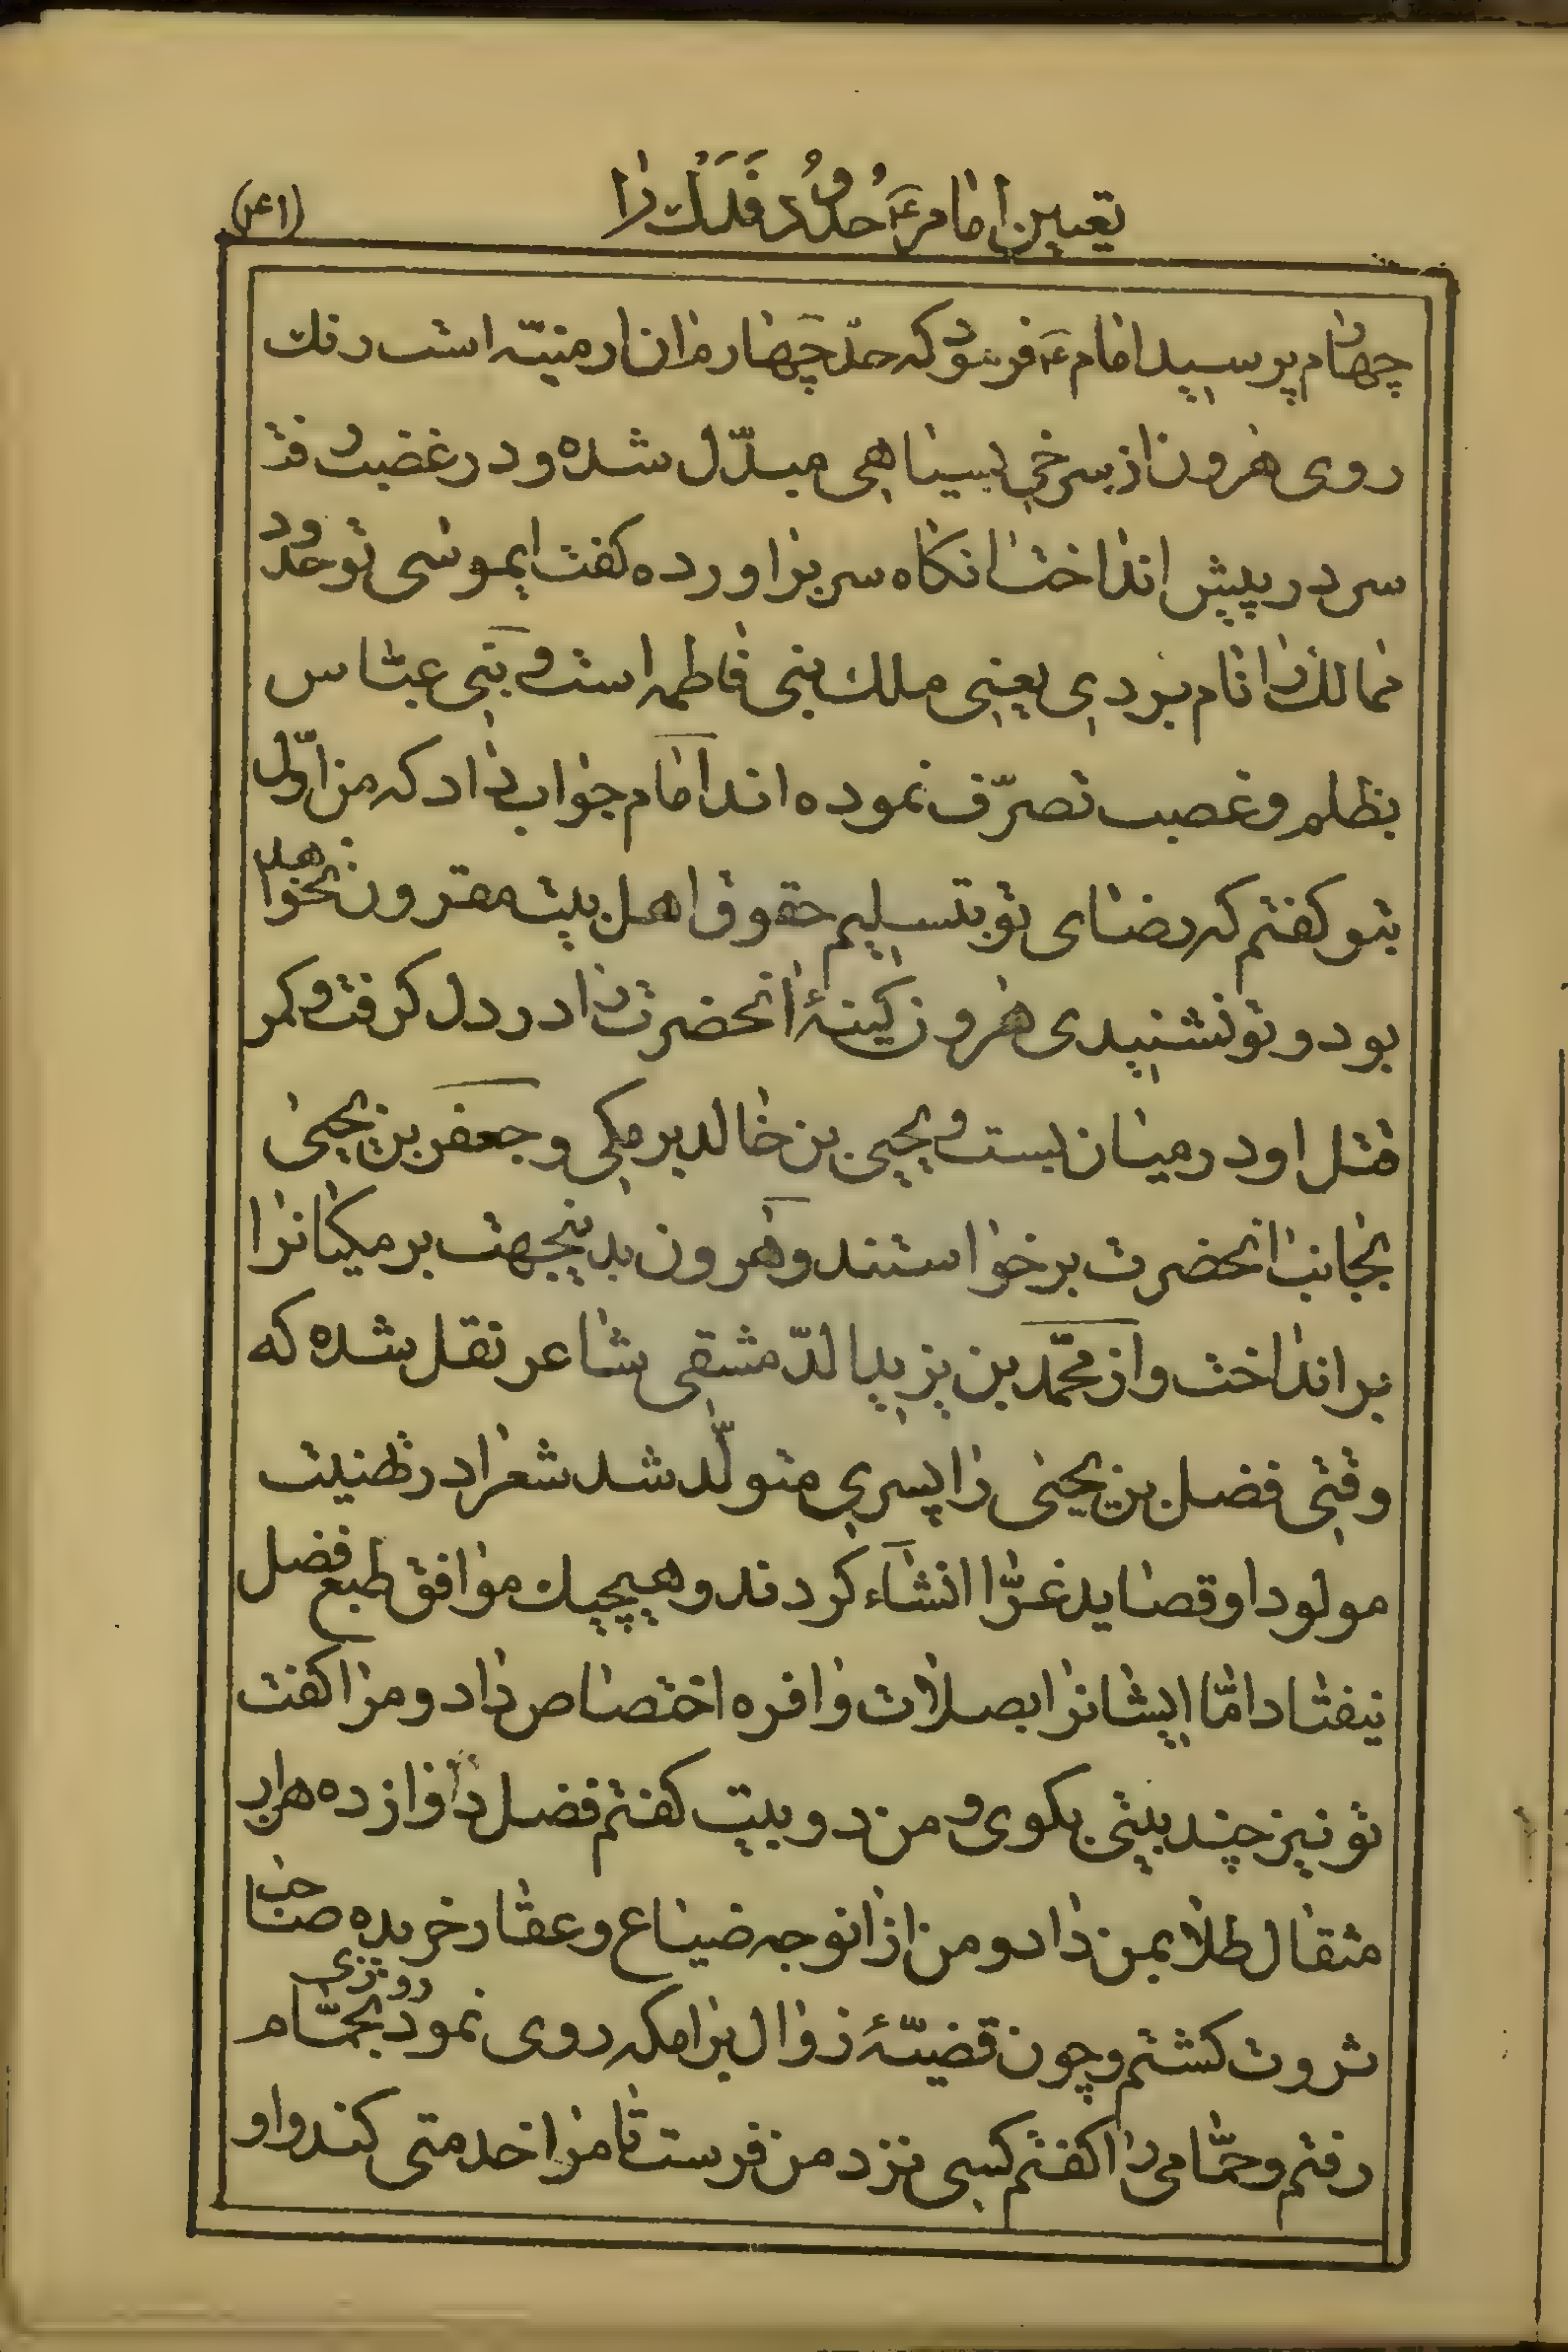 تعیین امام ع حُدُودِ فَدَكْ را
(۱۴۱)
چهارم پرسید امام ع فرمود که حدّ چهارم ان ارمنیّه است رنك
روی هرون از سرخی بسیاهی مبدّل شده و در غضب رفته
سر در پیش انداخت انکاه سر براورده کفت ایموسی تو حدود
ممالك را نام بردی یعنی ملك بنی فاطمه است و بنی عبّاس
بظلم و غصب تصرّف نموده اند امام جواب داد که من اوّل
بتو کفتم که رضای تو بتسلیم حقوق اهل بیت مقرون نخواهد
بود و تو نشنیدی هرون کینهٔ انحضرت را در دل کرفت و کمر
قتل او در میان بست و یحیی بن خالد برمکی و جعفر بن یحیی
بجانب انحضرت برخواستند و هرون بدینجهت برمکیانرا
برانداخت و از محمّد بن یزید الدّمشقی شاعر نقل شده که
وقتی فضل بن یحیی را پسری متولّد شد شعرا در تهنیت
مولود او قصاید غرّا انشاء کردند و هیچیك موافق طبع فضل
نیفتاد امّا ایشانرا بصلات وافره اختصاص داد و مرا کفت
تو نیز چند بیتی بکوی و من دو بیت کفتم فضل را و از ده هزار
مثقال طلا بمن داد و من از انوجه ضیاع و عقار خریده صاحب
ثروت کشتم و چون قضیّهٔ زوال برامکه روی نمود روزی بحمّام
رفتم و حمّامی را کفتم کسی نزد من فرست تا مرا خدمتی کند و او